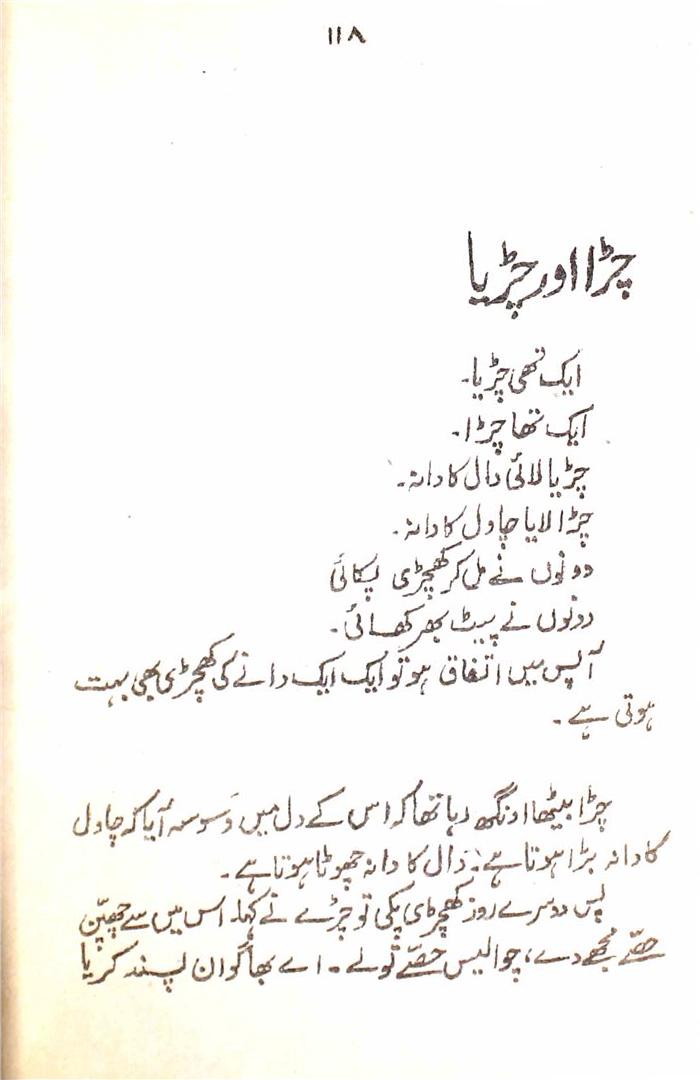 ۱۱۸
چڑا اور چڑیا
ایک تھی چڑیا۔
ایک تھا چڑا۔
چڑیا لائی دال کا دانہ۔
چڑا لایا چاول کا دانہ۔
دونوں نے مل کر کھچڑی پکائی
دونوں نے پیٹ بھر کھائی۔
آپس میں اتفاق ہو تو ایک ایک دانے کی کھچڑی بھی بہت
ہوتی ہے۔
چڑا بیٹھا اونگھ رہا تھا کہ اس کے دل میں وَسوسہ آیا کہ چاول
کا دانہ بڑا ہوتا ہے، دَال کا دانہ چھوٹا ہوتا ہے۔
پس دوسرے روز کھچڑی پکی تو چڑے نے کہا۔ اس میں سے چھپّن
حصّے مجھے دے، چوالیس حصّے تُو لے۔ اے بھاگوان پسند کر یا